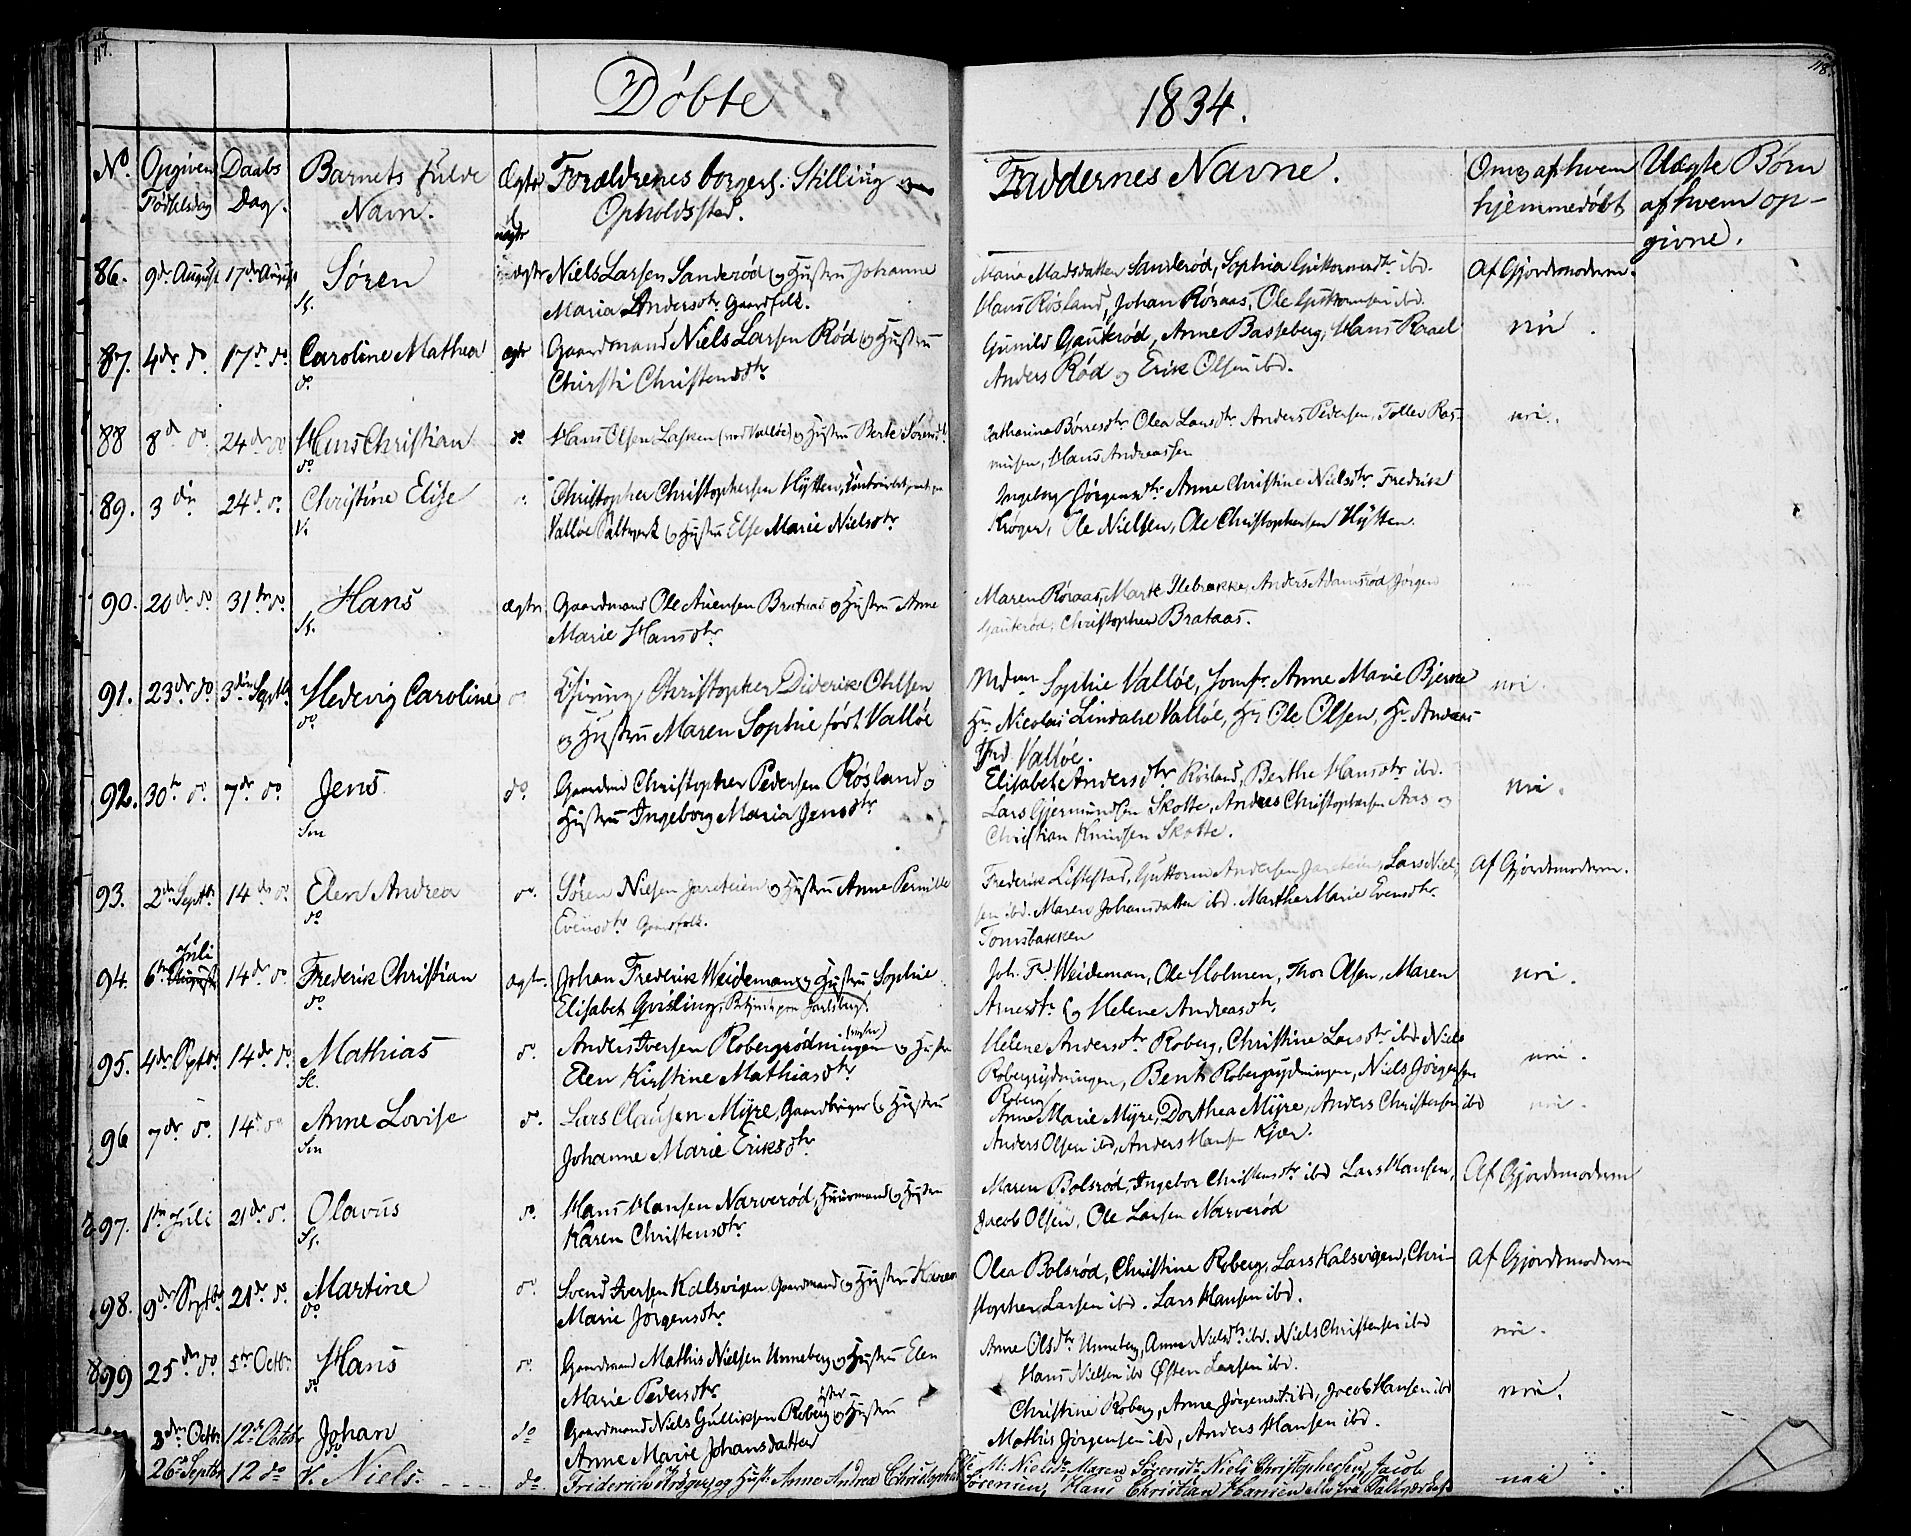 117.
118.
Døbte
1834.
No. Opgiven Fødselsdag Daabs Dag. Barnets fulde Navn. Ægte el. uægte Forældrenes borgerl. Stilling og Opholdssted.
Faddernes Navne. Om og af hvem hjemmedøbt Uægte Børn af hvem opgivne.
86. 9de August 17de August Søren Niels Larsen Sanderød og Hustru Johanne
Maria Andersdtr Gaardfolk.
Maria Madsdatter Sanderød, Sophia Guttormsdtr ibd. Af Gjordemoderen.
Hans Røsland, Johan Røraas, Ole Guttormsen ibd.
87. 4de do 17de do Caroline Mathea ægte Gaardmand Niels Larsen Rød og Hustru
do Christi Christensdtr
Gunild Gaukerød, Anne Basseberg, Hans Raael nei.
Anders Rød og Erik Olsen ibd.
88 8de do 24de do Hans Christian do Hans Olsen Lasken (ved Valløe) og Hustru Berte Sørensdtr
do
Catharina Børresdtr Olea Larsdtr Anders Pedersen, Tollev Ras- nei.
musen, Hans Andreassen
89. 3 din 24de do Christine Elise Christopher Christophersen Hytten,
V. Valløe Saltverk og Hustru Else Marie Nielsdtr
Ingeborg Jørgensdtr Anne Christine Nielsdtr Fredrik
Krøger, Ole Nielsen, Ole Christophersen Hytten.
90. 20de do 31te do Hans ægte Gaardmand Ole Auensen Brataas og Hustru Anne
Marie Hansdtr
Maren Røraas, Marte Ilebrække, Anders Adamsrød, Jørgen
Gaukerød, Christopher Brataas.
91. 23de do 3die Septbr Hedevig Caroline do Christopher Diderik Ohlsen
do og Hustru Maren Sophie født Valløe
Mdm Sophie Valløe, Jomfr. Anne Marie Bjerne nei.
Hr Nicolai Lindahl Valløe, Hr Ole Olsen, Hr Andreas
Frd. Valløe.
92. 30te do 7de do Jens do Gaardmd Christopher Pedersen Røsland og
Hustru Ingeborg Maria Jensdtr
Elisabet Andersdtr Røsland, Berthe Hansdtr ibd. nei.
Lars Gjermundsen Skotte, Andreas Christophersen Aas og
Christian Knudsen Skotte.
93. 2den Septbr 14de do Elen Andrea do Søren Nielsen Jareteien og Hustru Anne Pernille
do Evensdtr Gaardfolk.
Frederik Liflestad, Guttorm Andersen Jareteien, Lars Niel- Af Gjordemoderen.
sen ibd. Maren Johansdatter ibd. Marthe Marie Evensdtr
Tomsbakken
94. 6te Juli 14de do Frederik Christian ægte. Johan Frederik Weideman og Hustru Sophie
do Elisabet Qvisling,
Joh. Frd Weideman, Ole Holmen, Thor Olsen, Maren nei.
Arnesdtr og Helene Andreasdtr
95. 4de Septbr 14de do Mathias do Anders Iversen Robergrødningen og Hustru
Elen Kirstine Mathiasdtr
Helene Andersdtr Roberg, Christine Larsdtr ibd Niels nei.
Robergrydningen, Bent Robergrydningen, Niels Jørgensen
Roberg
96 7de do 14de do Anne Lovise do. Lars Clausen Myre, Gaardbruger og Hustru
Johanne Marie Eriksdtr
Anne Marie Myre, Dorthea Myre, Anders Christensen ibd nei.
Anders Olsen ibd, Anders Hansen Kjær.
97. 1ste Juli 21de do Olavus do. Hans Hansen Narverød, Huusmand og Hustru
Karen Christensdtr
Maren Bolsrød, Ingebor Christensdtr ibd Lars Hansen, Af Gjordemoderen
Jacob Olsen, Ole Larsen Narverød
98. 9de Septbr 21de do Martine do Svend Iversen Kalsvigen Gaardmand og Hustru Karen
do Marie Jørgensdtr
Olea Bolsrød, Christine Roberg, Lars Kalsvigen, Chri- Af Gjordemoderen
stopher Larsen ibd. Lars Hansen ibd.
99 25de do 5te Octbr Hans do Gaardmand Mathis Nielsen Unneberg og Hustru Elen
do Marie Pedersdtr
Anne Olsdtr Unneberg, Anne Nielsdtr ibd. Niels Christensen ibd nei.
Hans Nielsen ibd Østen Larsen ibd.
3die Octbr 12te Octbr Johan do Gaardmand Niels Gulliksen Roberg og Hustru
Anne Marie Johansdatter
Christine Roberg, Anne Jørgensdt. ibd, Jacob Hansen ibd nei.
Mathis Jørgensen ibd, Anders Hansen ibd.
26de Septbr 12 do V. Niels. do Friderich Krøger og Hust: Anne Andrea Christophersdtr
M. Nielsdtr Maren Sørensdtr Niels Christophersen, Jacob nei
Sørensen, Hans Christian Hansen alle fra Saltværket